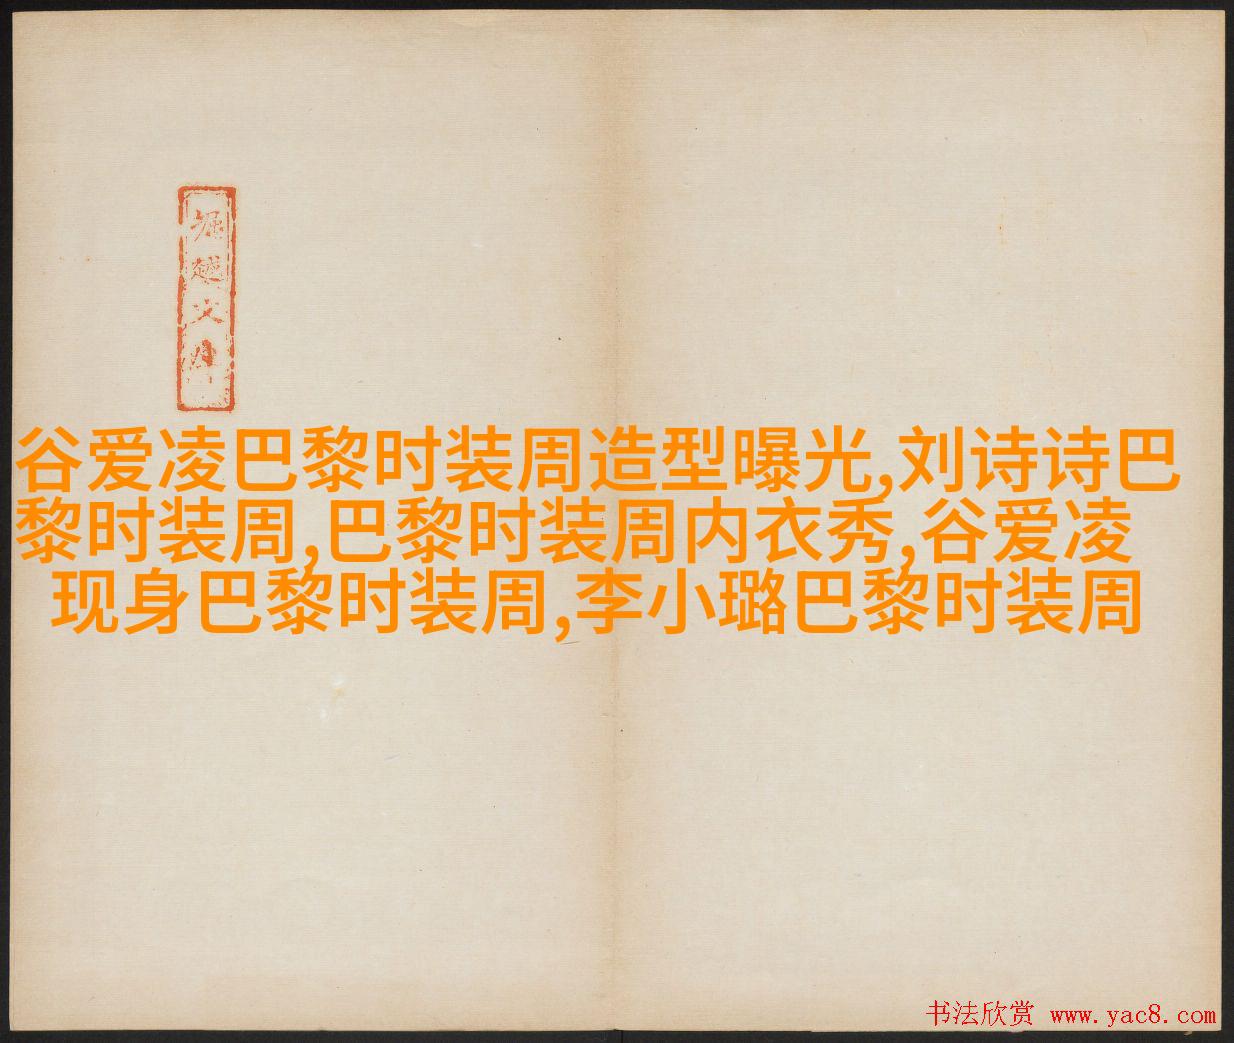 堀越文庫
谷爱凌巴黎时装周造型曝光,刘诗诗巴
黎时装周,巴黎时装周内衣秀,谷爱凌
现身巴黎时装周,李小璐巴黎时装周
书法欣赏 www.yac8.com